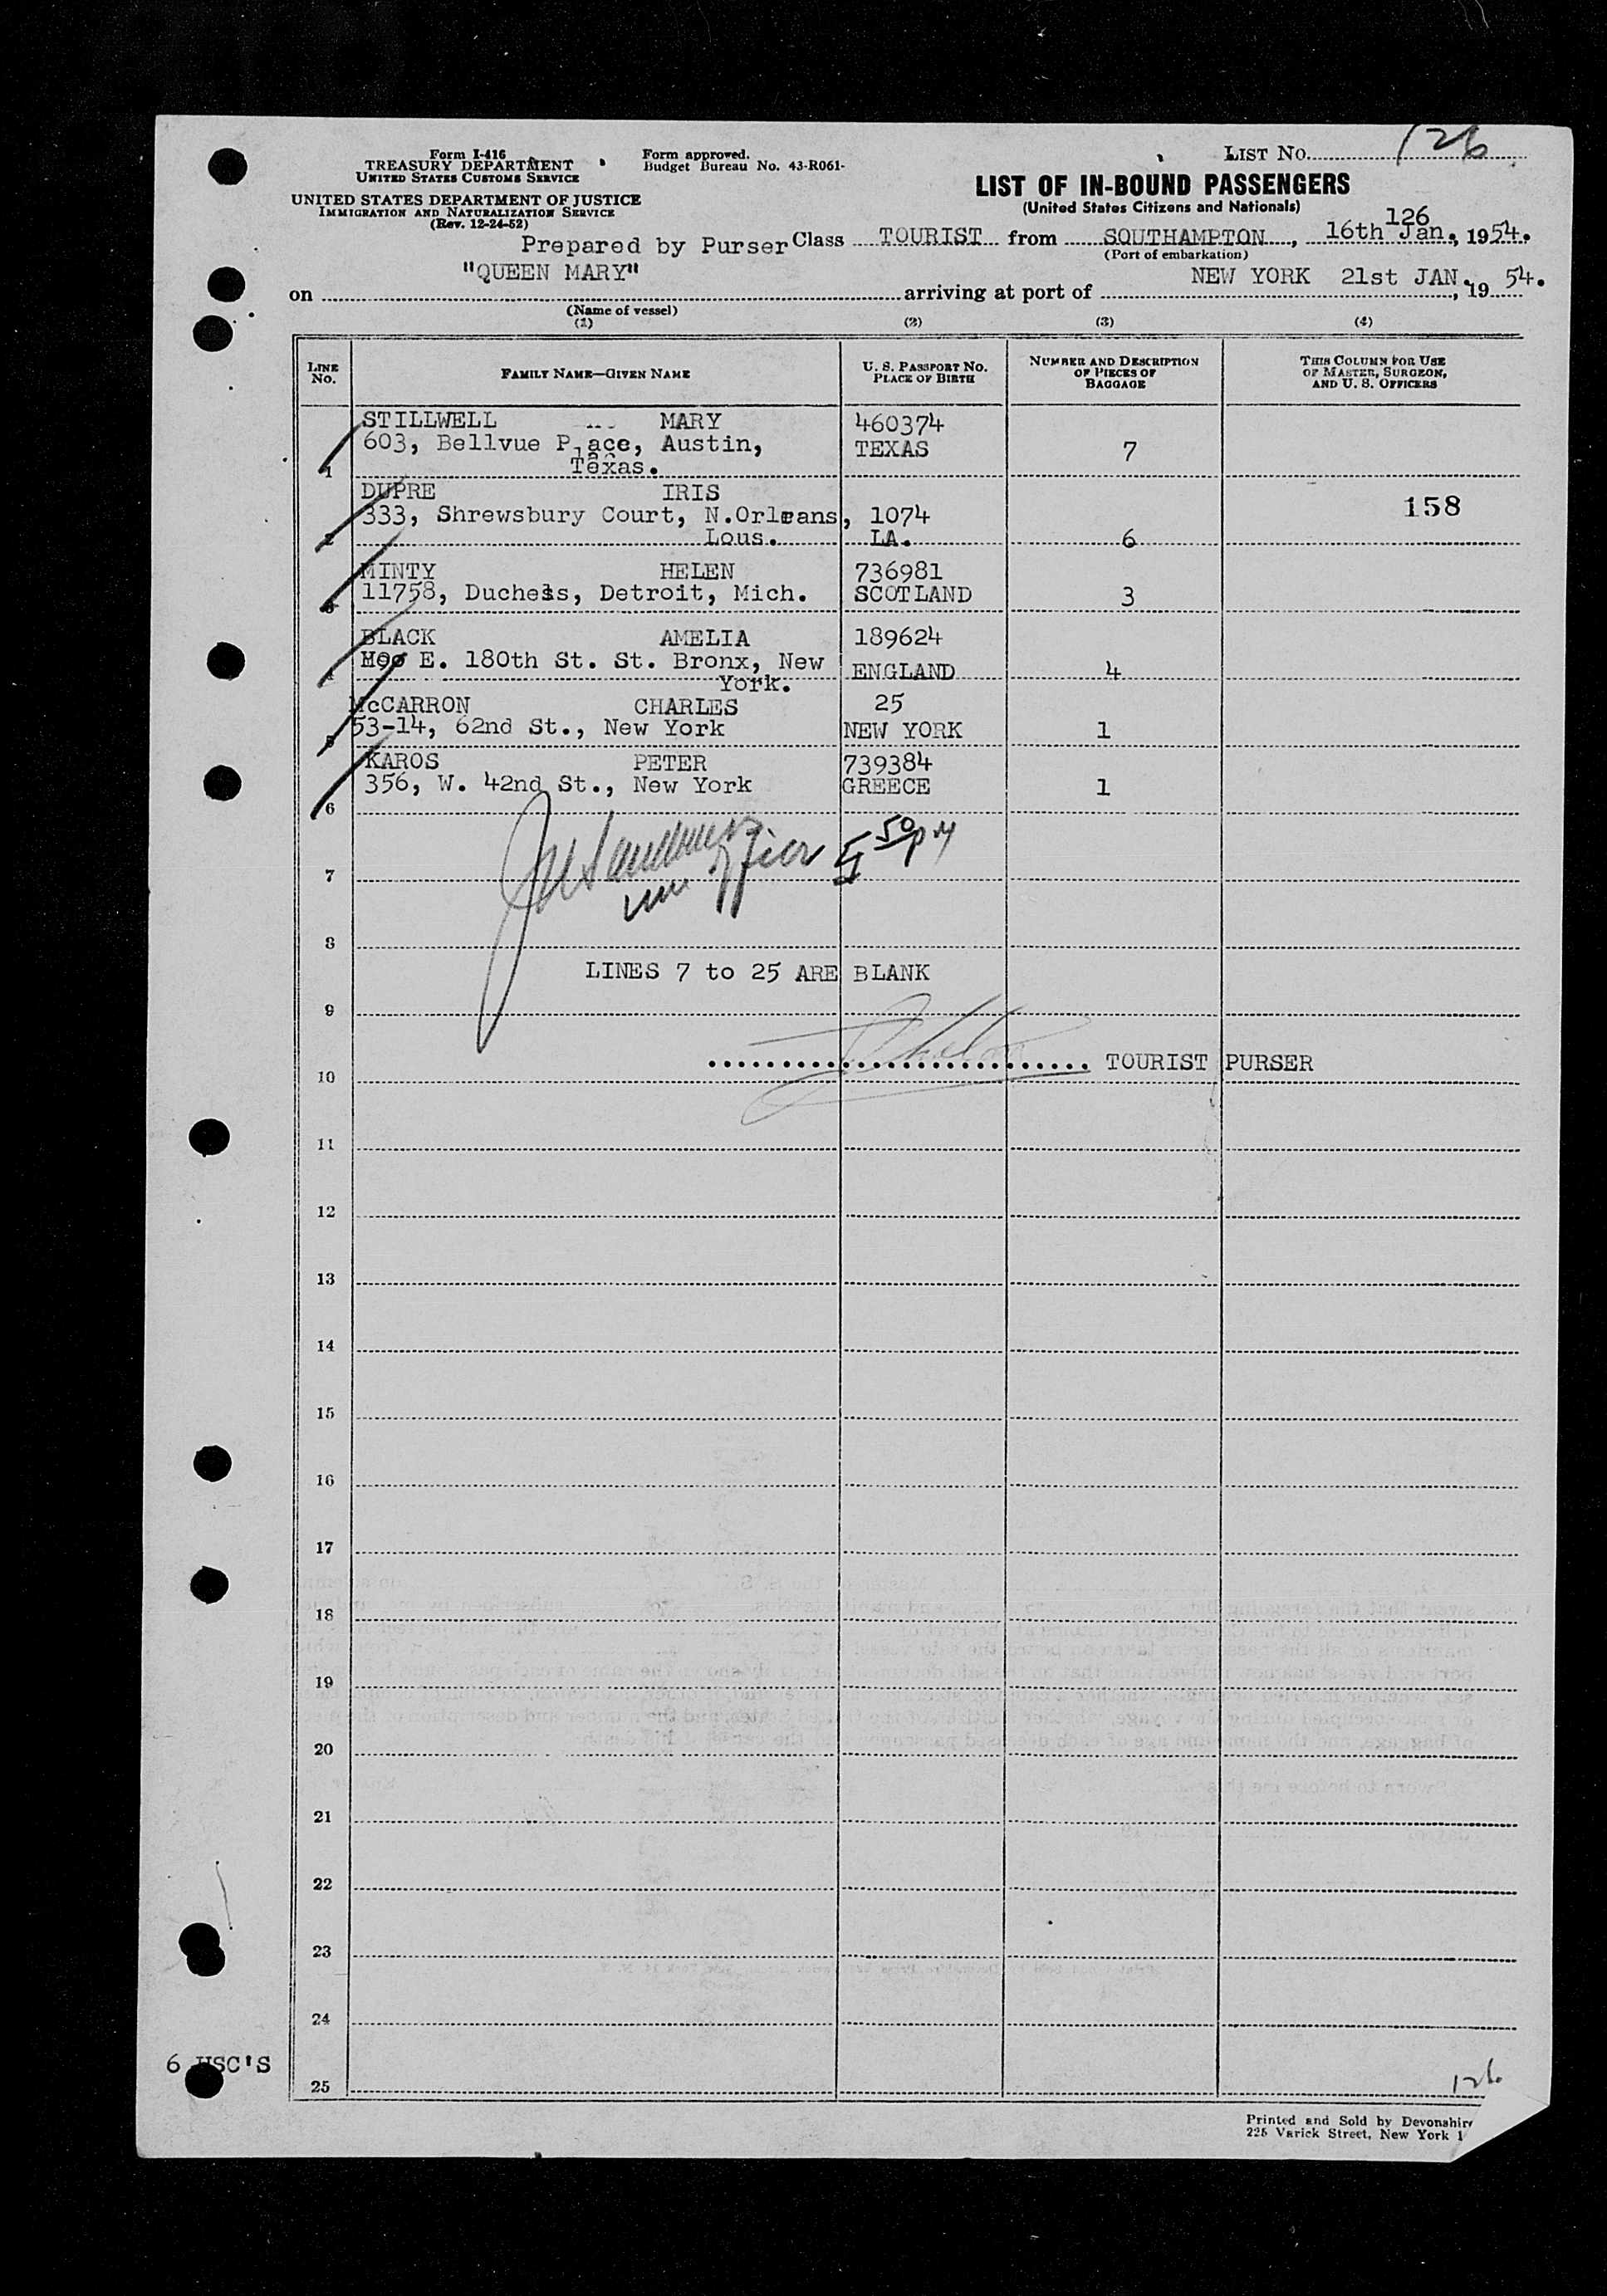 Form I-416
TREASURY DEPARTMENT
UNITED STATES CUSTOMS SERVICE
UNITED STATES DEPARTMENT OF JUSTICE
IMMIGRATION AND NATURALIZATION SERVICE
(Rev. 12-24-52)
Form approved.
Budget Bureau No. 43-R061-
LIST NO. 126
LIST OF IN-BOUND PASSENGERS
(United States Citizens and Nationals)
126
Prepared by Purser Class TOURIST from SOUTHAMPTON, 16th Jan., 1954.
(Port of embarkation)
on "QUEEN MARY" arriving at port of NEW YORK 21st JAN., 19 54.
(Name of vessel)
(1) (2) (3) (4)
LINE NO. FAMILY NAME—GIVEN NAME U. S. PASSPORT NO. PLACE OF BIRTH NUMBER AND DESCRIPTION OF PIECES OF BAGGAGE THIS COLUMN FOR USE OF MASTER, SURGEON, AND U. S. OFFICERS
STILLWELL MARY 460374
603, Bellvue Place, Austin, TEXAS 7
1 Texas.
DUPRE IRIS
158
333, Shrewsbury Court, N.Orleans, 1074
2 Lous. LA. 6
MINTY HELEN 736981
11758, Duchess, Detroit, Mich. SCOTLAND 3
3
BLACK AMELIA 189624
E. 180th St. St. Bronx, New ENGLAND 4
4 York.
McCARRON CHARLES 25
53-14, 62nd St., New York NEW YORK 1
5
KAROS PETER 739384
356, W. 42nd St., New York GREECE 1
6
5 50 PM
7
8
LINES 7 to 25 ARE BLANK
9
TOURIST PURSER
10
11
12
13
14
15
16
17
18
19
20
21
22
23
24
6 USC'S
25
126
Printed and Sold by Devonshire
225 Varick Street, New York 1